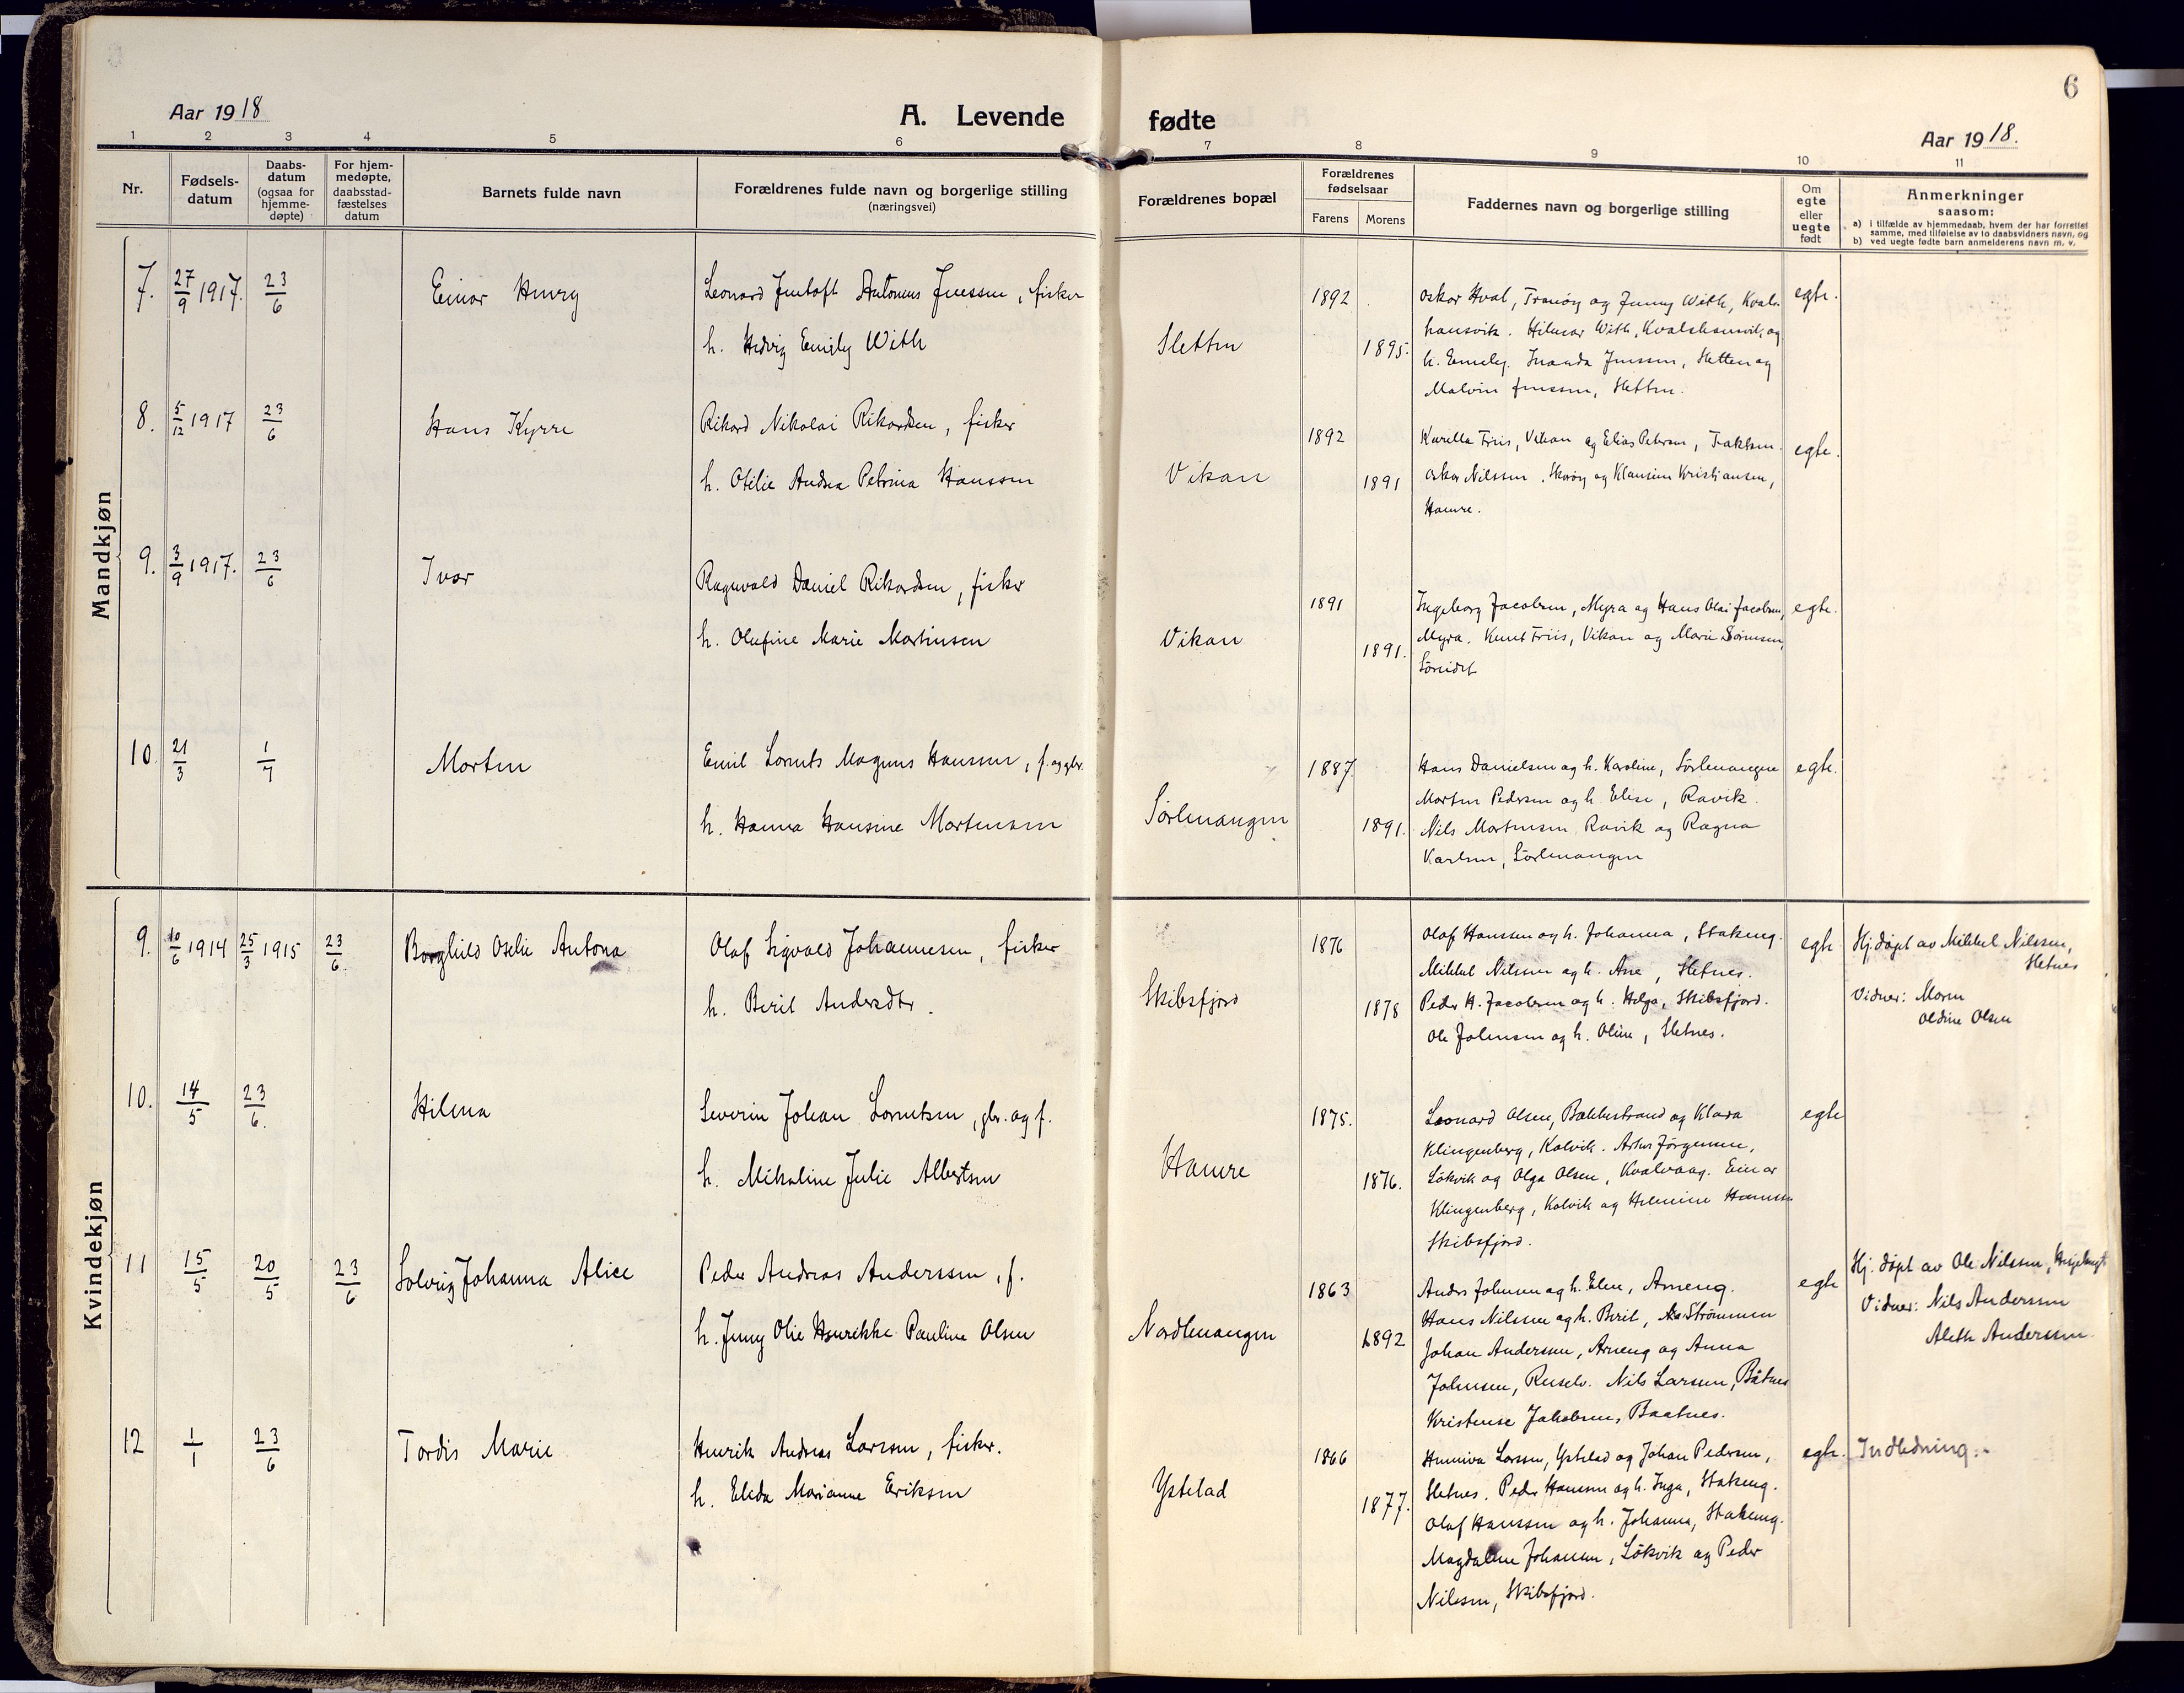 6
Aar 1918
A. Levende fødte
Aar 1918.
1 2 3 4 5 6 7 8 9 10 11
Nr.
Fødsels-
datum
Daabs-
datum
(ogsaa for
hjemme-
døpte)
For hjem-
medøpte,
daabsstad-
fæstelses
datum
Barnets fulde navn
Forældrenes fulde navn og borgerlige stilling
(næringsvei)
Forældrenes bopæl
Forældrenes
fødselsaar
Farens Morens
Faddernes navn og borgerlige stilling
Om
egte
eller
uegte
født
Anmerkninger
saasom:
a) i tilfælde av hjemmedaab, hvem der har forrettet
samme, med tilføielse av to daabsvidners navn, og
b) ved uegte fødte barn anmelderens navn m. v.
Mandkjøn
7. 27/9 1917. 23/6
Einar Henry
Leonard Antonius Jenssen, fisker
h. Hedvig Emily With
Sletten
1892
1895.
Oskar Hval, Tranöy og Jenny With, Kval-
hausvik. Hilmar With, og
h. Emely. Jenssen, Sletten og
Malvin Jenssen, Sletten.
egte.
8. 5/12 1917 23/6
Hans Kyrre
Rikard Nikolai Rikardsen, fisker
h. Otilie Andrea Petrina Hanssen
Vikan
1892
1891
Friis, Vikan og Elias Petersen,
Oskar Nilssen, og Kristiansen,
Hamre.
egte.
9. 3/9 1917. 23/6
Ivar
Ragnvald Daniel Rikardsen, fisker
h. Olufine Marie Martinsen
Vikan
1891
1891.
Ingeborg Jacobsen, Myra og Hans Olai Jacobsen,
Myra. Knut Friis, Vikan og Marie Sörensen,
Söreidet
egte.
10. 21/3 1/7
Morten
Emil Lorents Magnus Hanssen, f. og gbr.
h. Hanna Hansine Mortensen
Sörlenangen
1887.
1891.
Hans Danielsen og h. Karoline, Sörlenangen
Morten Pedersen og h. Elise, Ravik.
Nils Mortensen, Ravik og Ragna
Karlsen, Sörlenangen
egte.
Kvindekjøn
9. 10/6 1914 25/3 1915 23/6.
Borghild Oselie Antona
Olaf Sigvald Johannesen, fisker
h. Berit Andersdtr.
Skibsfjord
1876
1878
Olaf Hanssen og h. Johanna, Stakeng.
Mikkel Nilssen og h. Ane, Sletnes.
Peder H. Jacobsen og h. Helga, Skibsfjord.
Ole Johnsen og h. Oline, Sletnes.
egte
Hj.døpt av Mikkel Nilssen,
Sletnes
Vidner: Moren
Oldine Olsen
10. 14/5 23/6.
Hilena
Severin Johan Lorentsen, gbr. og f.
h. Mikaline Julie Albertsen
Hamre
1875.
1876.
Leonard Olsen, Bakkestrand og Klara
Klingenberg, Kalvik. Jörgensen,
Lökvik og Olga Olsen, Kvalvaag. Einar
Klingenberg, Kalvik og Helmine Hanssen
Skibsfjord.
egte
11 15/5 20/5 23/6
Solveig Johanna Alice
Peder Andreas Anderssen, f.
h. Jenny Olie Henrikke Pauline Olsen
Nordlenangen
1863
1892
Anders Johnsen og h. Elen, Arneng.
Hans Nilssen og h. Berit, Strömmen
Johan Anderssen, Arneng og Anna
Johnsen, Ruselv. Nils Larssen, Båtnes
Kristense Jakobsen, Baatnes.
egte
Hj. døpt av Ole Nilssen,
Vidner: Nils Anderssen
Aleth Anderssen.
12 1/1 23/6
Tordis Marie
Henrik Andreas Larssen, fisker.
h. Elida Marianne Eriksen
Ystelad
1866
1877.
Larssen, Ystelad og Johan Pedersen,
Sletnes. Peder Hanssen og h. Inga, Stakeng.
Olaf Hanssen og h. Johanna, Stakeng.
Magdalene Johansen, Lökvik og Peder
Nilssen, Skibsfjord.
egte.
Indledning.